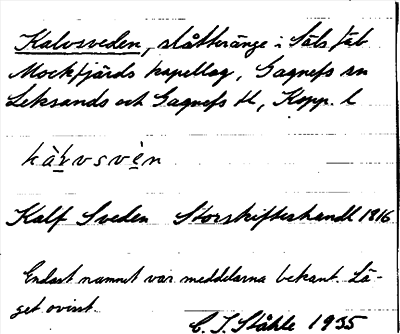 Kalvsveden, slåtteränge i Säls fäb
Mockfjärds kapellag, Gagnefs sn
Leksands och Gagnefs tl, Kopp. l
kàrvsvèn
Kalf Sveden Storskifteshandl 1816
Endast namnet var meddelarna bekant. Lä-
get ovisst.
C. I. Ståhle 1935